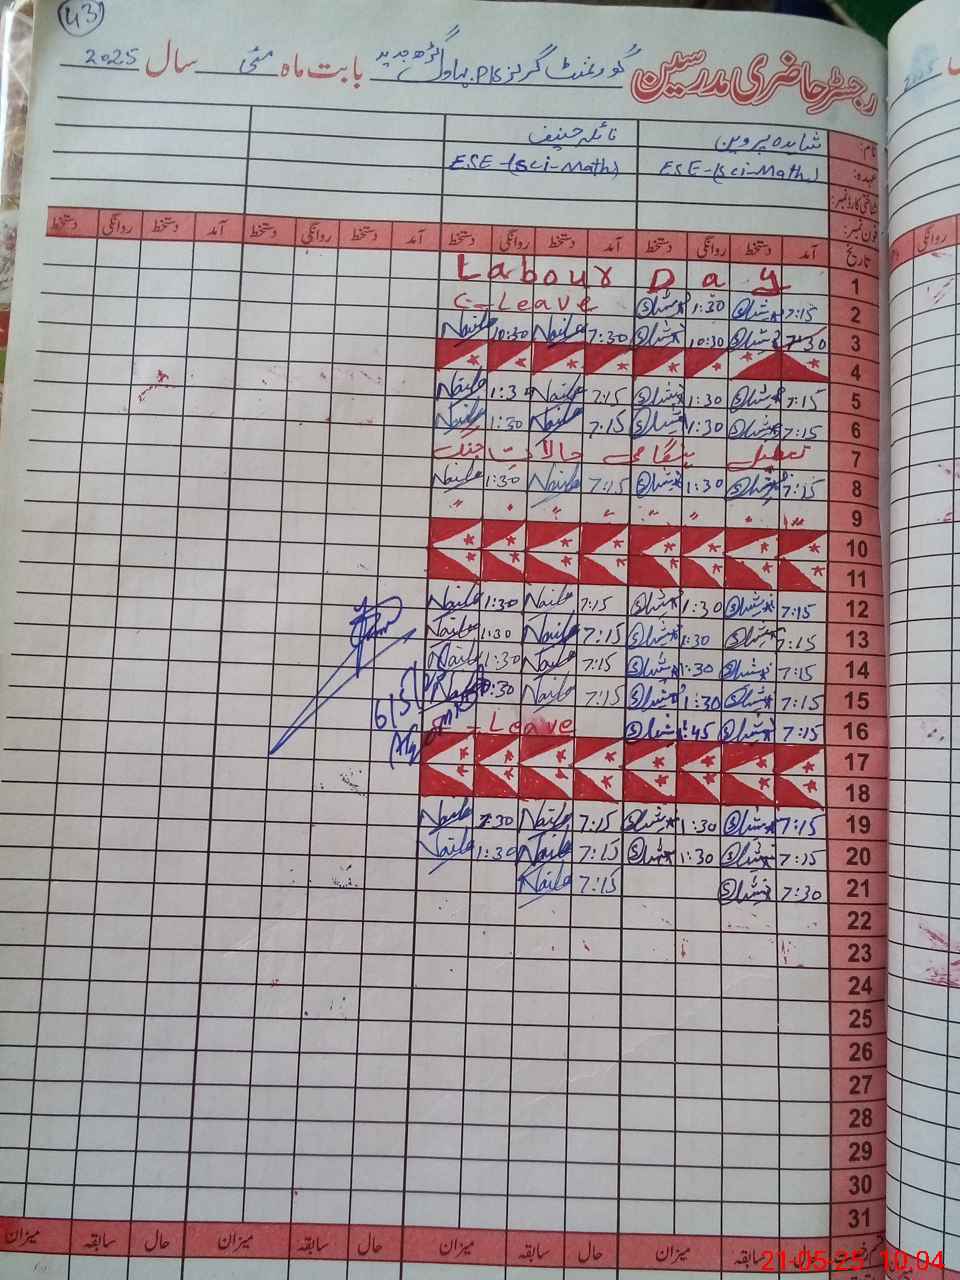 43
رجسٹر حاضری مدرسین گورنمنٹ گرلز P/S بہاول گڑھ جدید بابت ماہ مئی سال 2025
نام: شاہدہ پروین نائلہ حنیف
عہدہ: ESE-(Sci-Math) ESE-(Sci-Math)
شناختی کارڈ نمبر:
فون نمبر:
تاریخ آمد دستخط روانگی دستخط آمد دستخط روانگی دستخط آمد دستخط روانگی دستخط آمد دستخط روانگی دستخط
1 Labour Day
2 7:15 1:30 C-Leave
3 7:30 10:30 7:30 Naila 10:30 Naila
4
5 7:15 1:30 7:15 Naila 1:30 Naila
6 7:15 1:30 7:15 Naila 1:30 Naila
7 تعطیل ہنگامی حالات جنگ
8 7:15 1:30 7:15 Naila 1:30 Naila
9 " " " " " "
10
11
12 7:15 1:30 7:15 Naila 1:30 Naila
13 7:15 1:30 7:15 Naila 1:30 Naila
14 7:15 1:30 7:15 Naila 1:30 Naila
15 7:15 1:30 7:15 Naila :30 Naila
16 7:15 1:45 Leave
17
18
19 7:15 1:30 7:15 Naila 1:30 Naila
20 7:15 1:30 7:15 Naila 1:30 Naila
21 7:30 7:15 Naila
22
23
24
25
26
27
28
29
30
31
سابقہ حال میزان سابقہ حال میزان سابقہ حال میزان سابقہ حال میزان
21-05-25 10:04